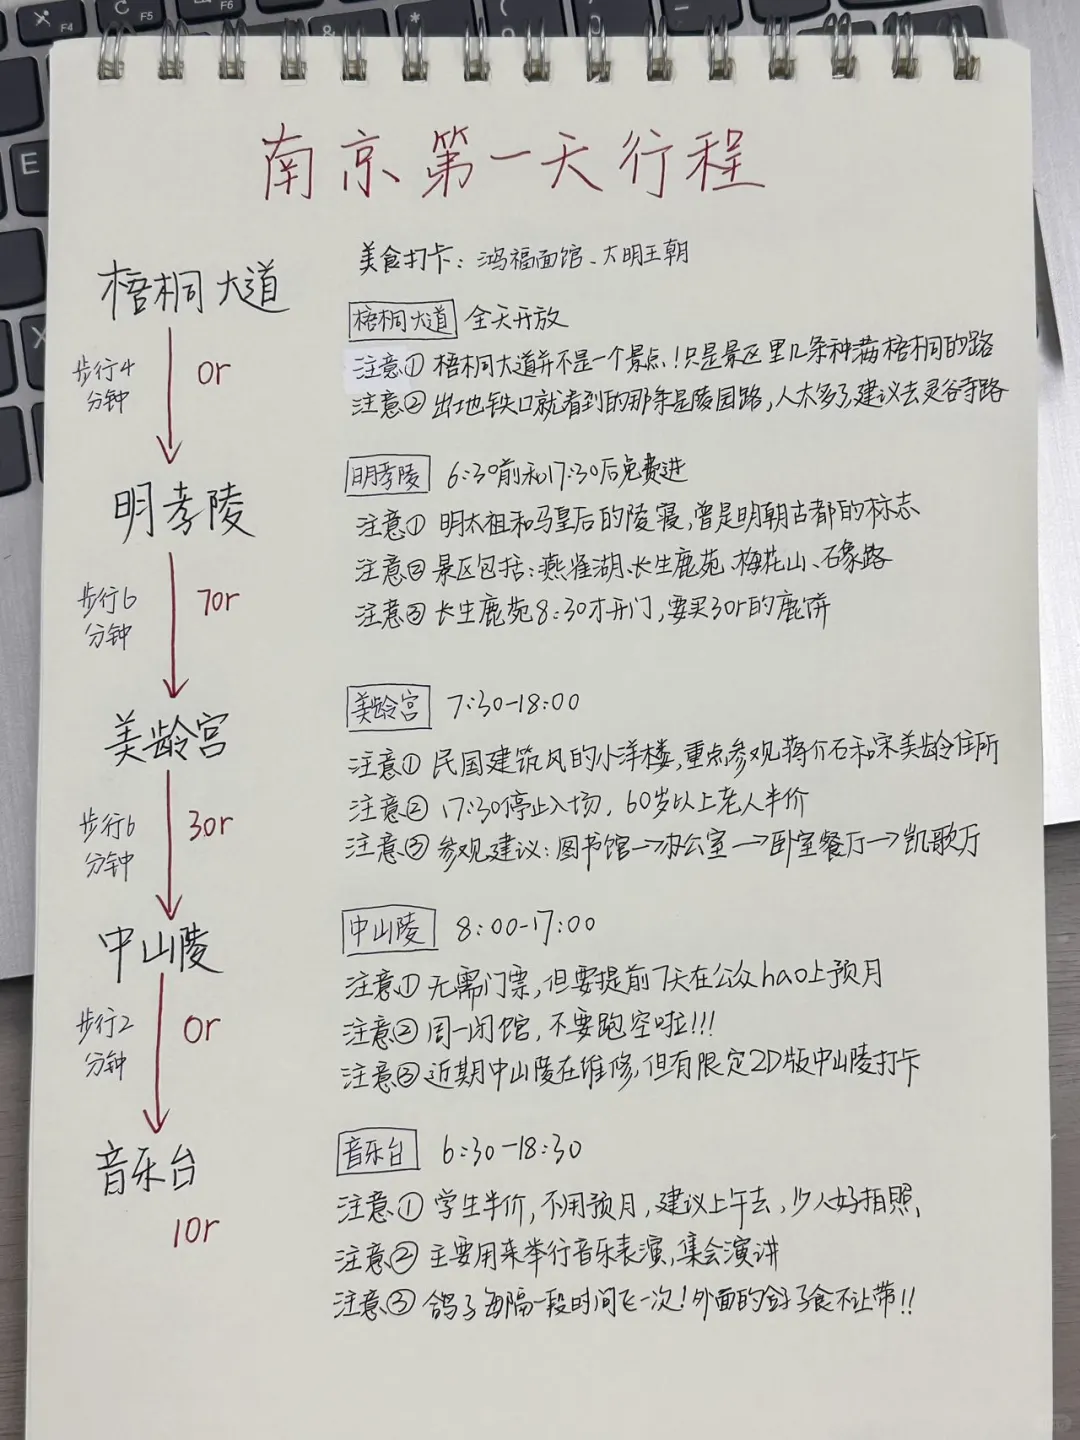 南京第一天行程
美食打卡：鸿福面馆、大明王朝
梧桐大道
步行4分钟
0r
明孝陵
步行6分钟
70r
美龄宫
步行6分钟
30r
中山陵
步行2分钟
0r
音乐台
10r
梧桐大道 全天开放
注意① 梧桐大道并不是一个景点！只是景区里几条种满梧桐的路
注意② 出地铁口就看到的那条是陵园路，人太多了建议去灵谷寺路
明孝陵 6:30前和17:30后免费进
注意① 明太祖和马皇后的陵寝，曾是明朝古都的标志
注意② 景区包括：燕雀湖、长生鹿苑、梅花山、石象路
注意③ 长生鹿苑8:30才开门，要买30r的鹿饼
美龄宫 7:30-18:00
注意① 民国建筑风的小洋楼，重点参观蒋介石和宋美龄住所
注意② 17:30停止入场，60岁以上老人半价
注意③ 参观建议：图书馆→办公室→卧室餐厅→凯歌厅
中山陵 8:00-17:00
注意① 无需门票，但要提前7天在公众hao上预月
注意② 周一闭馆，不要跑空啦!!!
注意③ 近期中山陵在维修，但有限定2D版中山陵打卡
音乐台 6:30-18:30
注意① 学生半价，不用预月，建议上午去，少人好拍照、
注意② 主要用来举行音乐表演，集会演讲
注意③ 鸽子每隔一段时间飞一次！外面的鸽子食不让带!!
E
F4
F5
F6
C